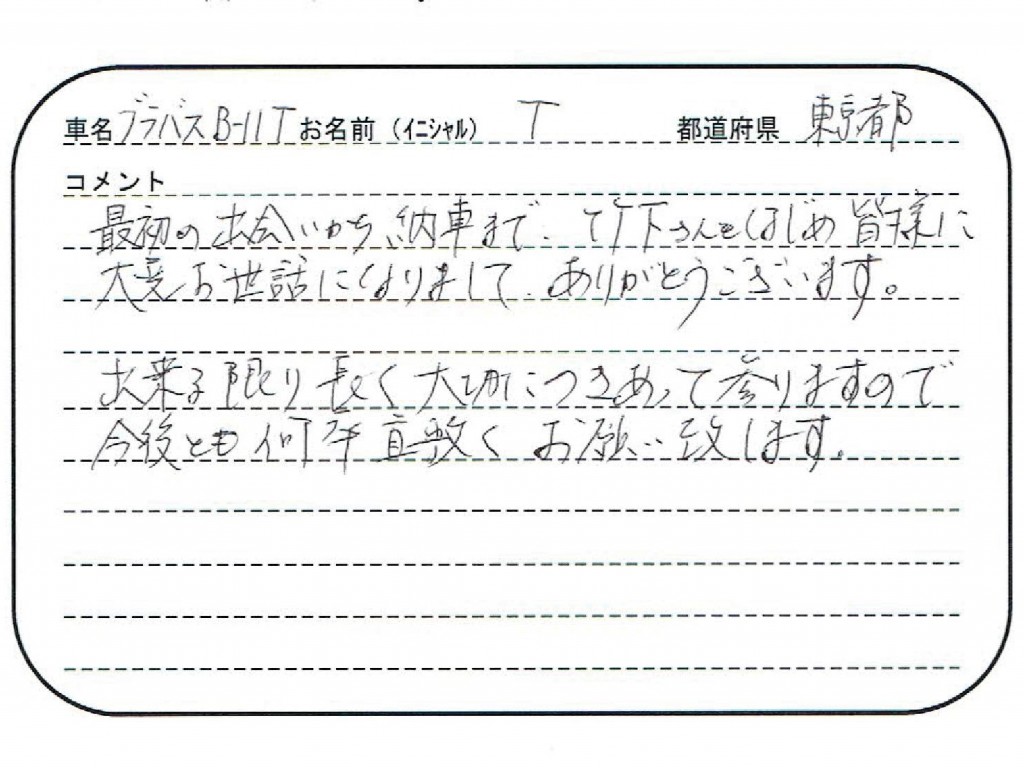 車名 ブラバスB-11T お名前（イニシャル） T 都道府県 東京都
コメント
最初の出会いから納車まで、竹下さんをはじめ皆様に
大変お世話になりまして、ありがとうございます。
出来る限り長く大切につきあって参りますので
今後とも何卒宜敷くお願い致します。